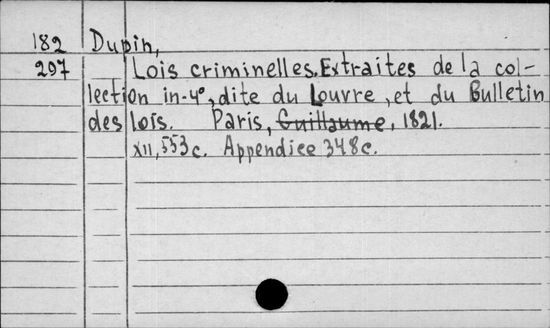 182 Dupin,
297 Lois criminelles. Extraites de la col-
lection in-4°, dite du Louvre, et du Bulletin
des lois. Paris, Guillaume, 1821.
XII, 553 c. Appendice 348 c.